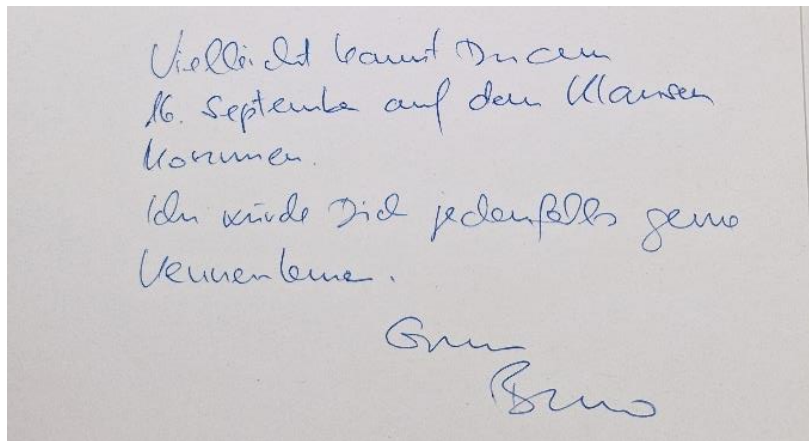 Vielleicht kannst Du am
16. September auf den Klausen
kommen.
Ich würde Dich jedenfalls gerne
kennenlernen.
Gruss
Bruno